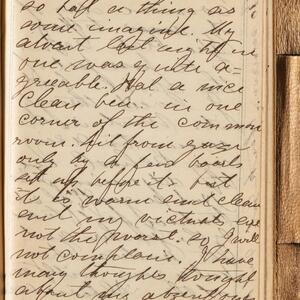 so bad a thing as
some imagine. My
advent last night in
one was quite a-
greeable. Had a nice
clean bed in one
corner of the common
room. hid from gaze
only by a few boards
set up before it. but
it is warm and clean
and my victuals are
not the worst. so I will
not complain. I have
many thoughts thought
about my absent